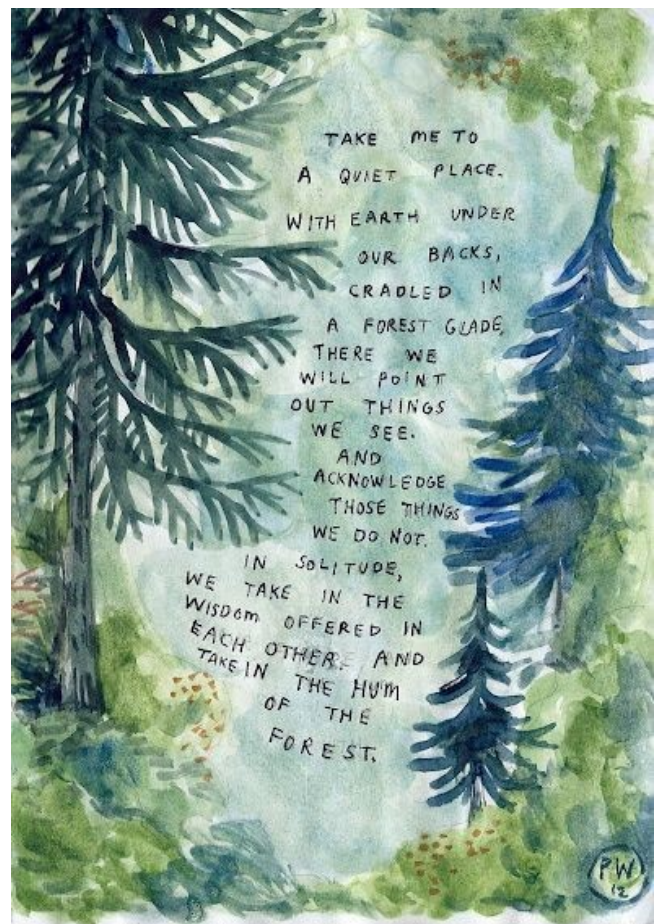 TAKE ME TO
A QUIET PLACE.
WITH EARTH UNDER
OUR BACKS,
CRADLED IN
A FOREST GLADE,
THERE WE
WILL POINT
OUT THINGS
WE SEE.
AND
ACKNOWLEDGE
THOSE THINGS
WE DO NOT.
IN SOLITUDE,
WE TAKE IN THE
WISDOM OFFERED IN
EACH OTHER. AND
TAKE IN THE HUM
OF THE
FOREST.
PW
12